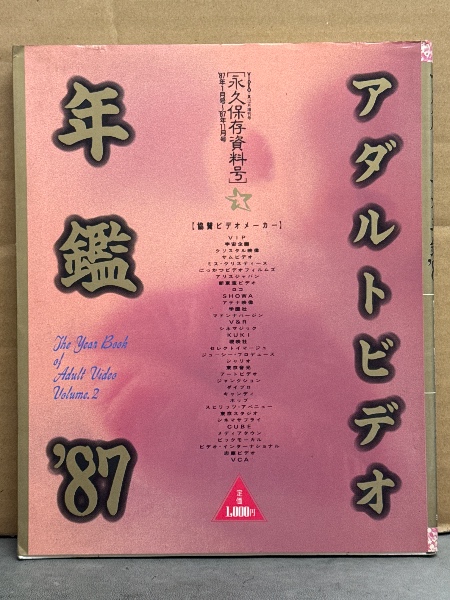 アダルトビデオ
年鑑'87
The Year Book
of
Adult Video
Volume.2
[永久保存資料号]
'87年1月号〜'87年11月号
【協賛ビデオメーカー】
VIP
宇宙企画
クリスタル映像
サムビデオ
ミス・クリスティーヌ
にっかつビデオフィルムズ
アリスジャパン
新東宝ビデオ
ロゴ
SHOWA
アテナ映像
学園社
マドンナバージン
V&R
シネマジック
KUKI
セレクトイマージュ
ジューシー・プロデュース
シャリオ
アートビデオ
ジャンクション
ダイプロ
キャンディ
ホップ
スピリッツ・アベニュー
東京スタジオ
シネマサプライ
CUBE
メディアタウン
ビックモーカル
ビデオ・インターナショナル
近藤ビデオ
VCA
定価
1,000円